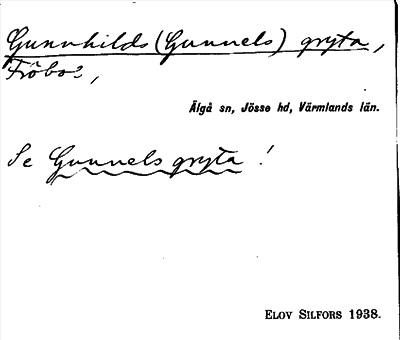 Gunnhilds (Gunnels) gryta,
Fröbo?,
Älgå sn, Jösse hd, Värmlands län.
Se Gunnels gryta!
ELOV SILFORS 1938.